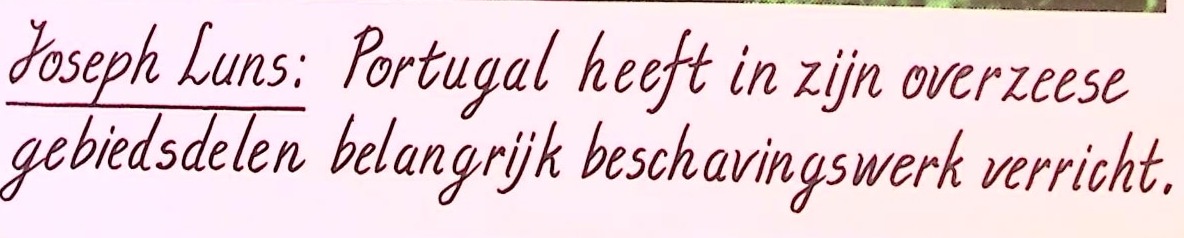 Joseph Luns: Portugal heeft in zijn overzeese
gebiedsdelen belangrijk beschavingswerk verricht.